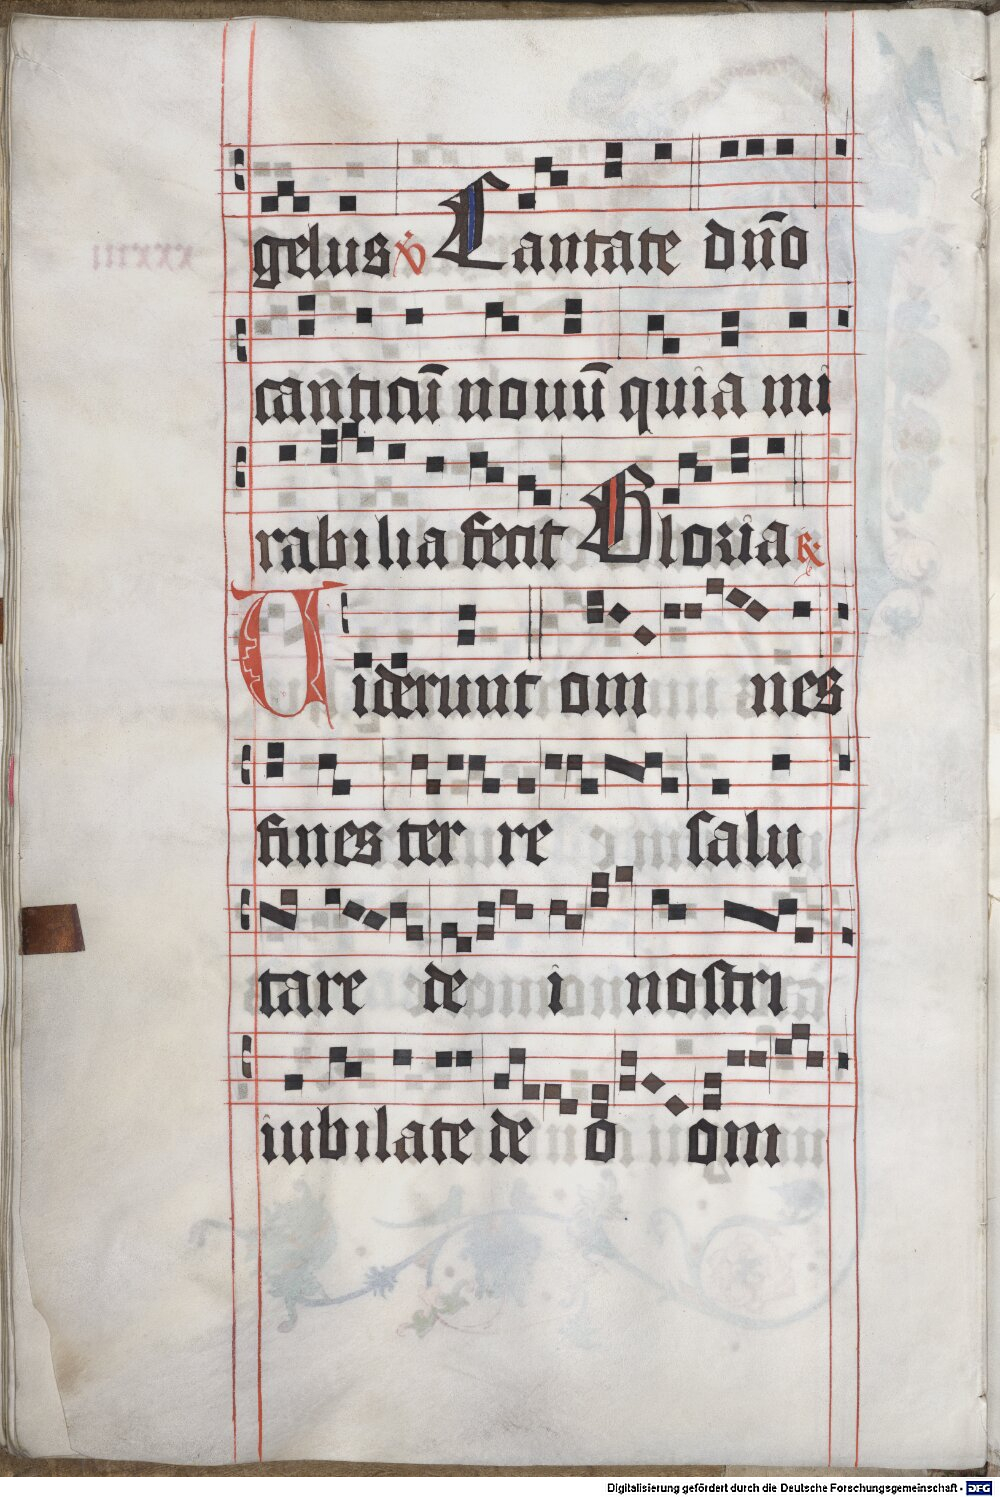 gelus ℣ Cantate dn̄o
canticū nouū quia mi
rabilia fecit Gloria ℟
Uiderunt om nes
fines ter re salu
tare de i nostri
iubilate de o om
Digitalisierung gefördert durch die Deutsche Forschungsgemeinschaft - DFG